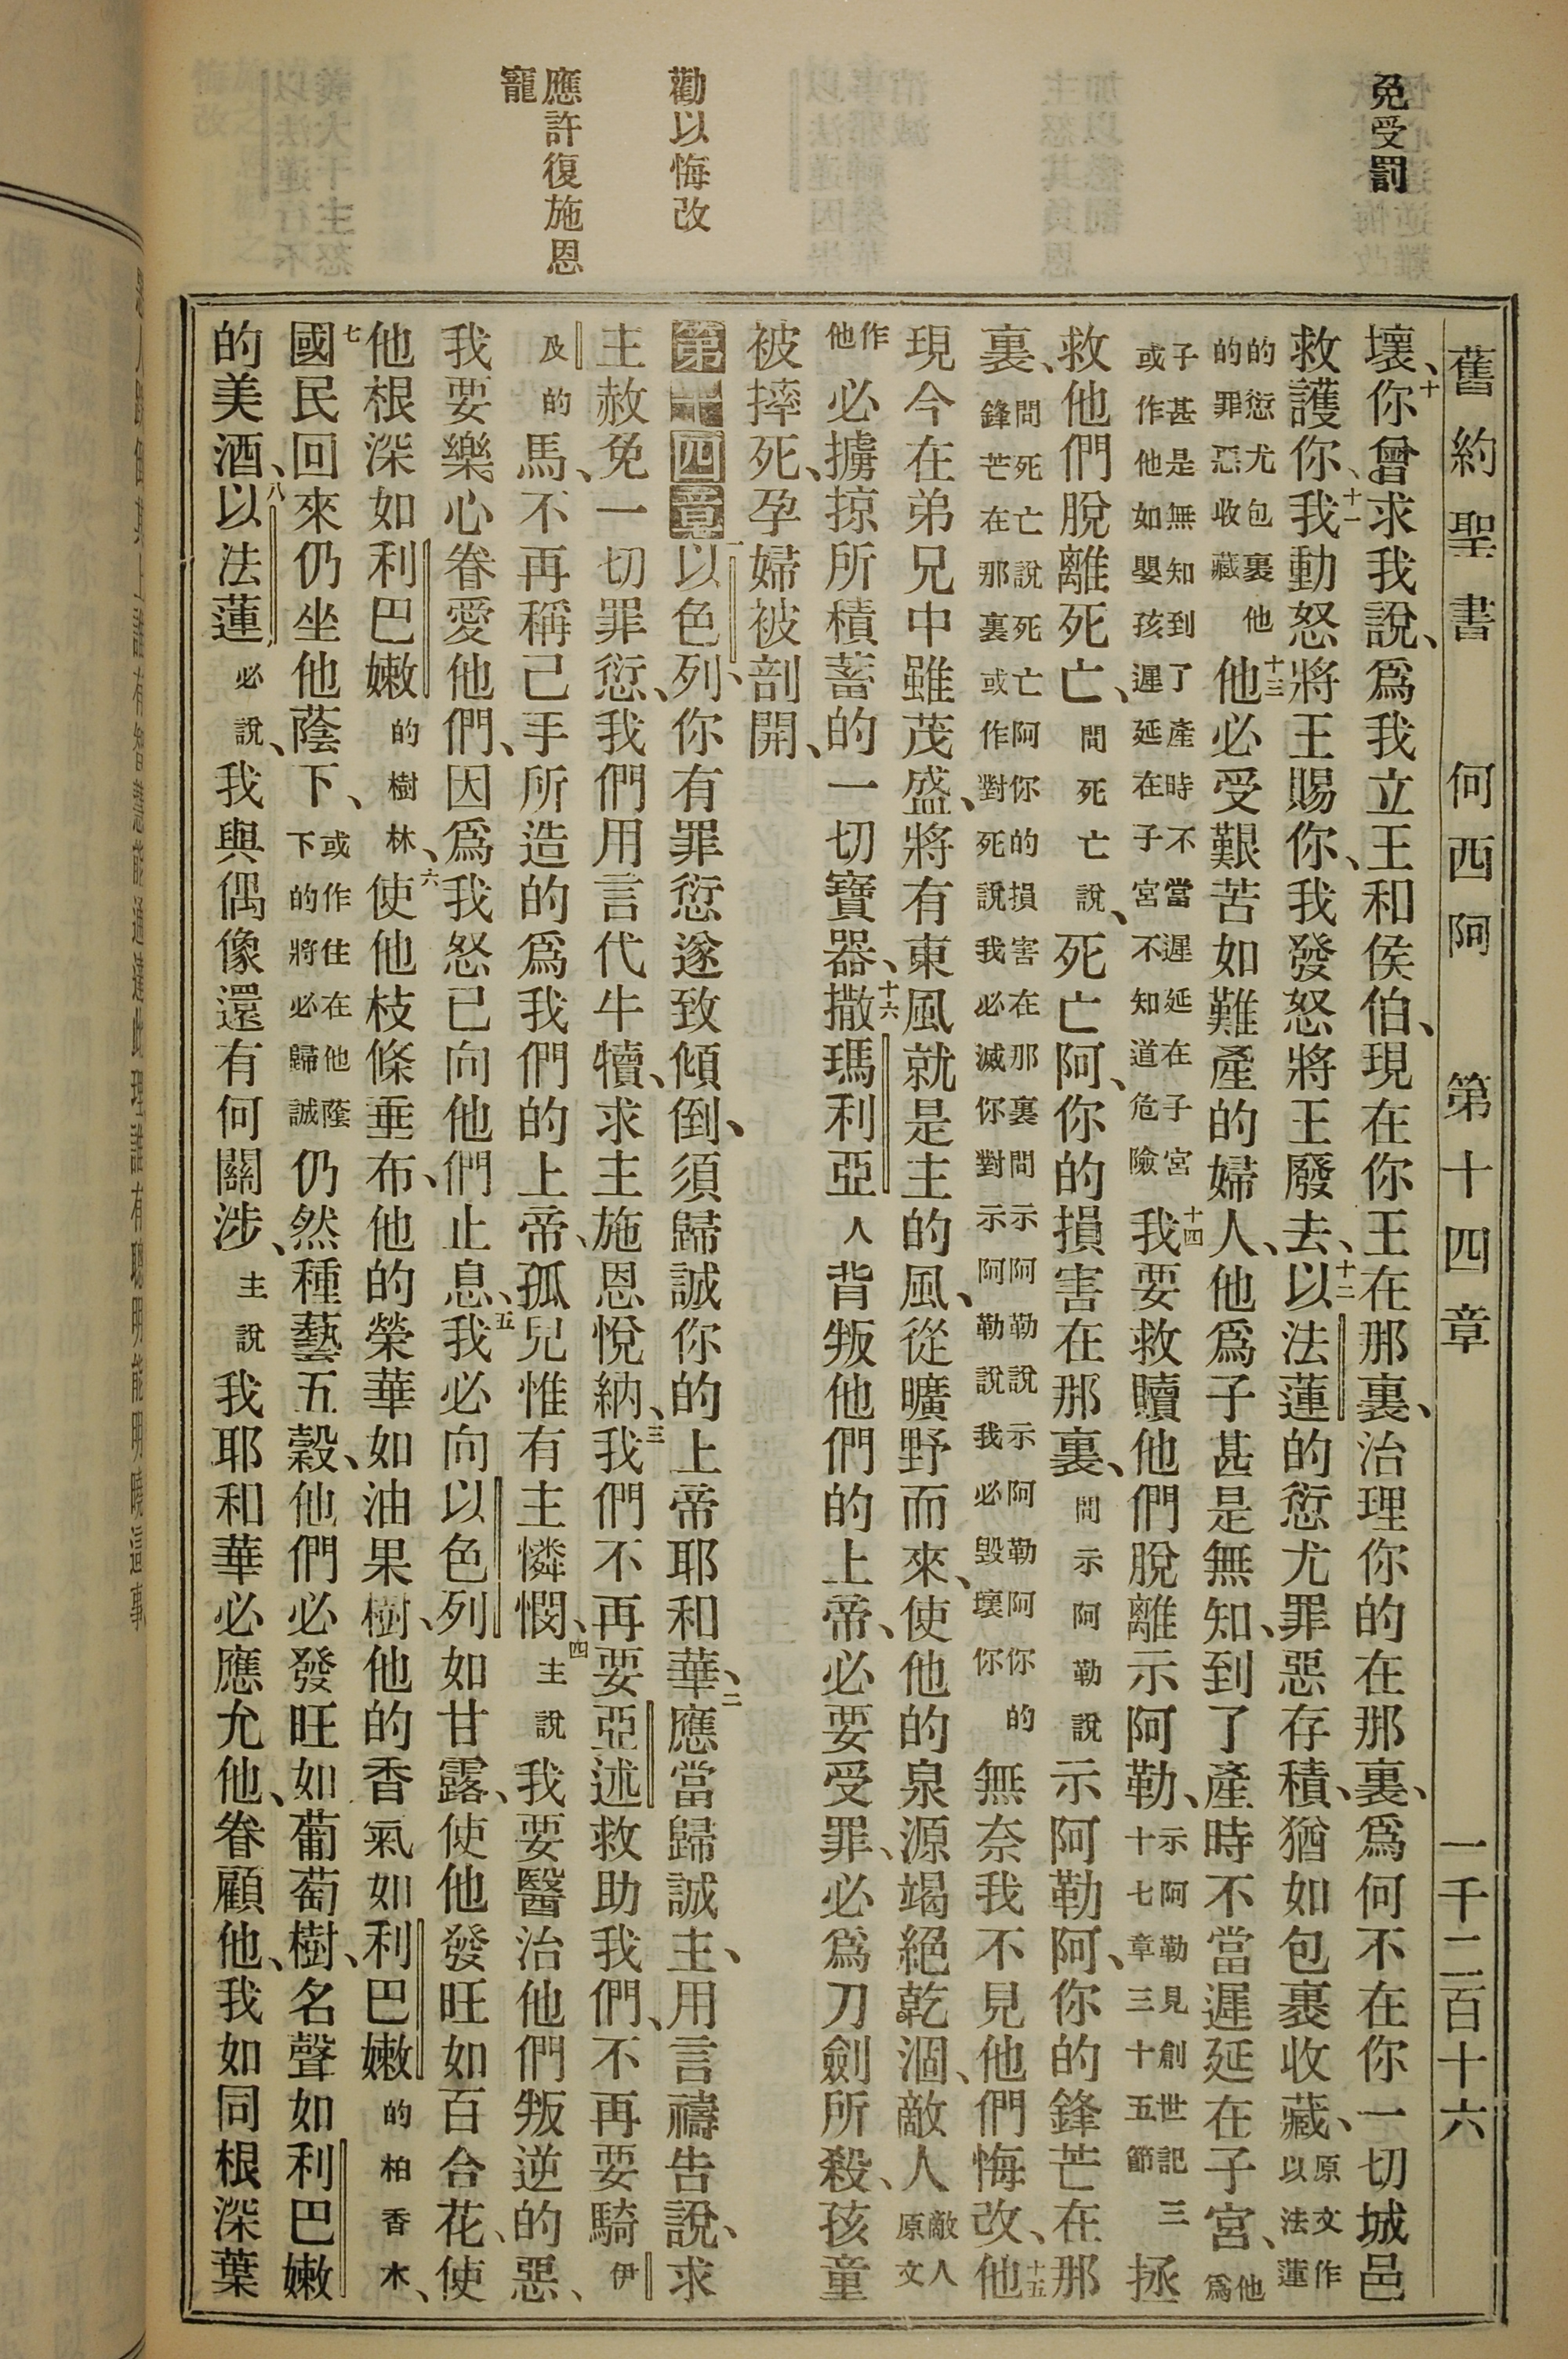 免受罰
勸以悔改
應許復施恩
寵
舊約聖書 何西阿 第十四章 一千二百十六
壞、十你曾求我說、爲我立王和侯伯、現在你王在那裏、治理你的在那裏、爲何不在你一切城邑
救護你、十一我動怒將王賜你、我發怒將王廢去、十二以法蓮的愆尤罪惡存積、猶如包裹收藏、原文作以法蓮
的愆尤包裹他的罪惡收藏十三他必受艱苦如難產的婦人、他爲子甚是無知、到了產時不當遲延在子宮、他爲
子甚是無知到了產時不當遲延在子宮或作他如嬰孩遲延在子宮不知道危險十四我要救贖他們脫離示阿勒、示阿勒見創世記三十七章三十五節拯
救他們脫離死亡、問死亡說、死亡阿、你的損害在那裏、問示阿勒說示阿勒阿、你的鋒芒在那
裏、問死亡說死亡阿你的損害在那裏問示阿勒說示阿勒阿你的鋒芒在那裏或作對死說我必滅你對示阿勒說我必毀壞你無奈我不見他們悔改、十五他
現今在弟兄中雖茂盛、將有東風就是主的風、從曠野而來、使他的泉源竭絕乾涸、敵人敵人原文
作他必擄掠所積蓄的一切寶器、十六撒瑪利亞人背叛他們的上帝、必要受罪、必爲刀劍所殺、孩童
被摔死、孕婦被剖開、
第十四章 一以色列、你有罪愆遂致傾倒、須歸誠你的上帝耶和華、二應當歸誠主、用言禱告說、求
主赦免一切罪愆、我們用言代牛犢、求主施恩悅納、三我們不再要亞述救助我們、不再要騎伊
及的馬、不再稱己手所造的爲我們的上帝、孤兒惟有主憐憫、四主說我要醫治他們叛逆的惡、
我要樂心眷愛他們、因爲我怒已向他們止息、五我必向以色列如甘露、使他發旺如百合花、使
他根深如利巴嫩的樹林、六使他枝條垂布、他的榮華如油果樹、他的香氣如利巴嫩的柏香木、
七國民回來仍坐他蔭下、或作住在他蔭下的將必歸誠仍然種藝五穀、他們必發旺如葡萄樹、名聲如利巴嫩
的美酒、八以法蓮必說、我與偶像還有何關涉、主說我耶和華必應允他、眷顧他、我如同根深葉